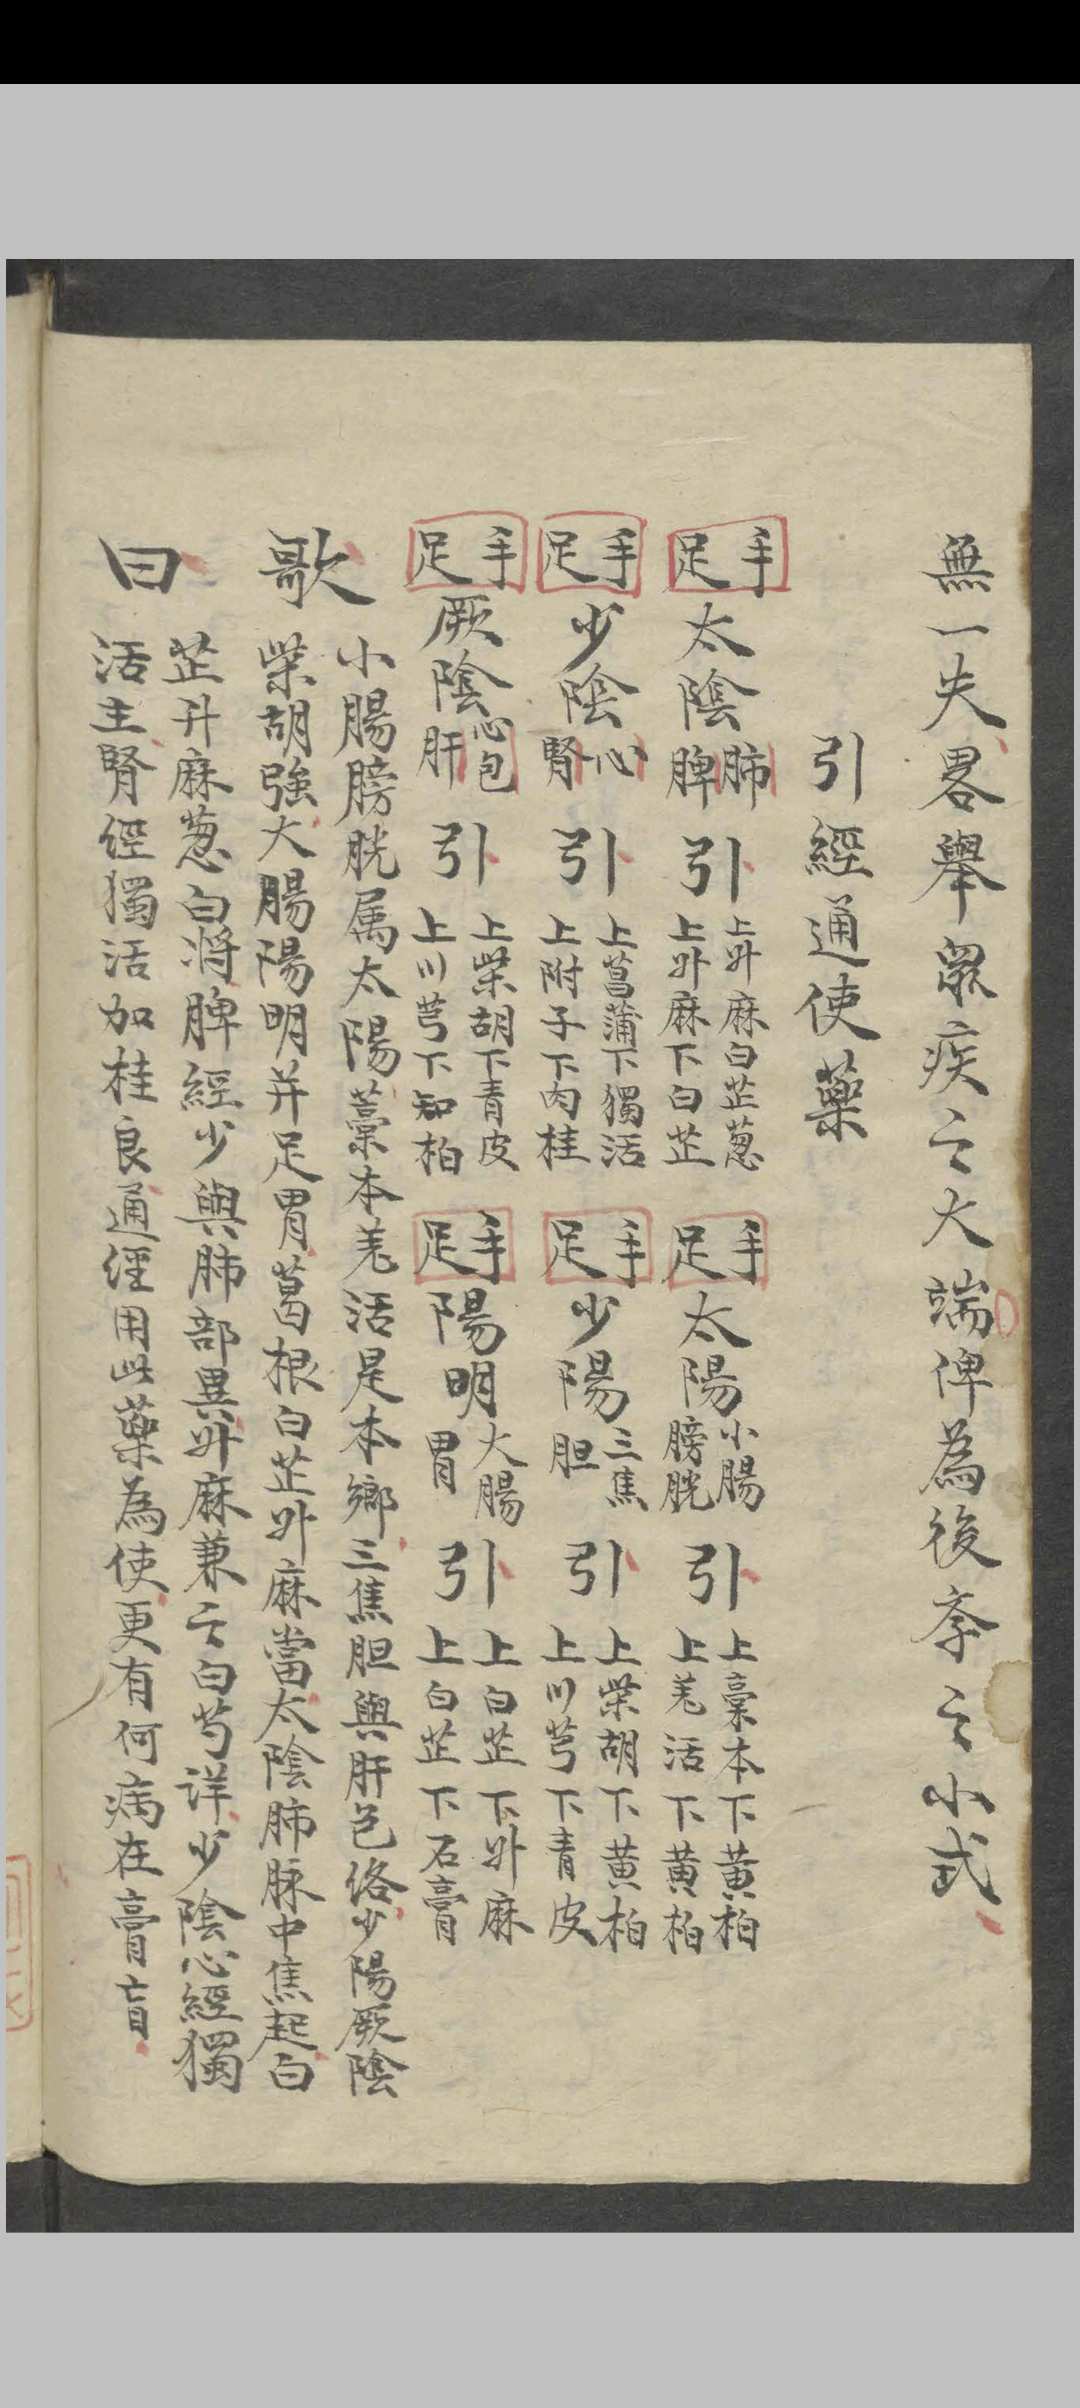 無一失畧舉衆疾之大端俾為後孝之小式
引經通使藥
手足太陰肺脾引上升麻白芷葱上升麻下白芷
手足太陽小腸膀胱引上藁本下黄柏上羌活下黄柏
手足少陰心腎引上菖蒲下獨活上附子下肉桂
手足少陽三焦胆引上柴胡下黄柏上川芎下青皮
手足厥陰心包肝引上柴胡下青皮上川芎下知柏
手足陽明大腸胃引上白芷下升麻上白芷下石膏
歌曰
小腸膀胱属太陽藁本羌活是本鄉三焦胆與肝包佫少陽厥陰
柴胡強大腸陽明并足胃葛根白芷升麻當太陰肺脉中焦起白
芷升麻葱白将脾經少與肺部異升麻兼之白芍详少陰心經獨
活主腎經獨活加桂良通經用此藥為使更有何病在膏盲